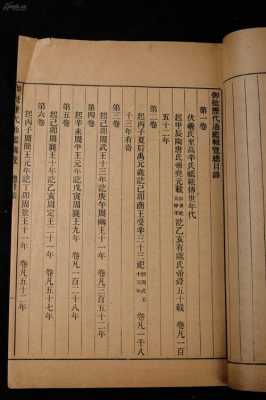 御批歷代通鑑輯覽總目錄
第一卷
伏羲氏至高辛氏紙紀傳世年代
起甲辰陶唐氏帝堯元載訖乙亥有虞氏帝舜五十載 卷凡一百
五十二年
第二卷
起丙子夏后禹元歲訖己卯商王受辛三十三祀 卷凡一千八
十三年有奇
第三卷
起己卯周武王十三年訖庚午周幽王十一年 卷凡三百五十二年
第四卷
起辛未周平王元年訖戊寅周襄王九年 卷凡一百二十八年
第五卷
起己卯周襄王十年訖乙亥周定王二十一年 卷凡五十七年
第六卷
起丙子周簡王元年訖丁卯周景王十一年 卷凡五十二年